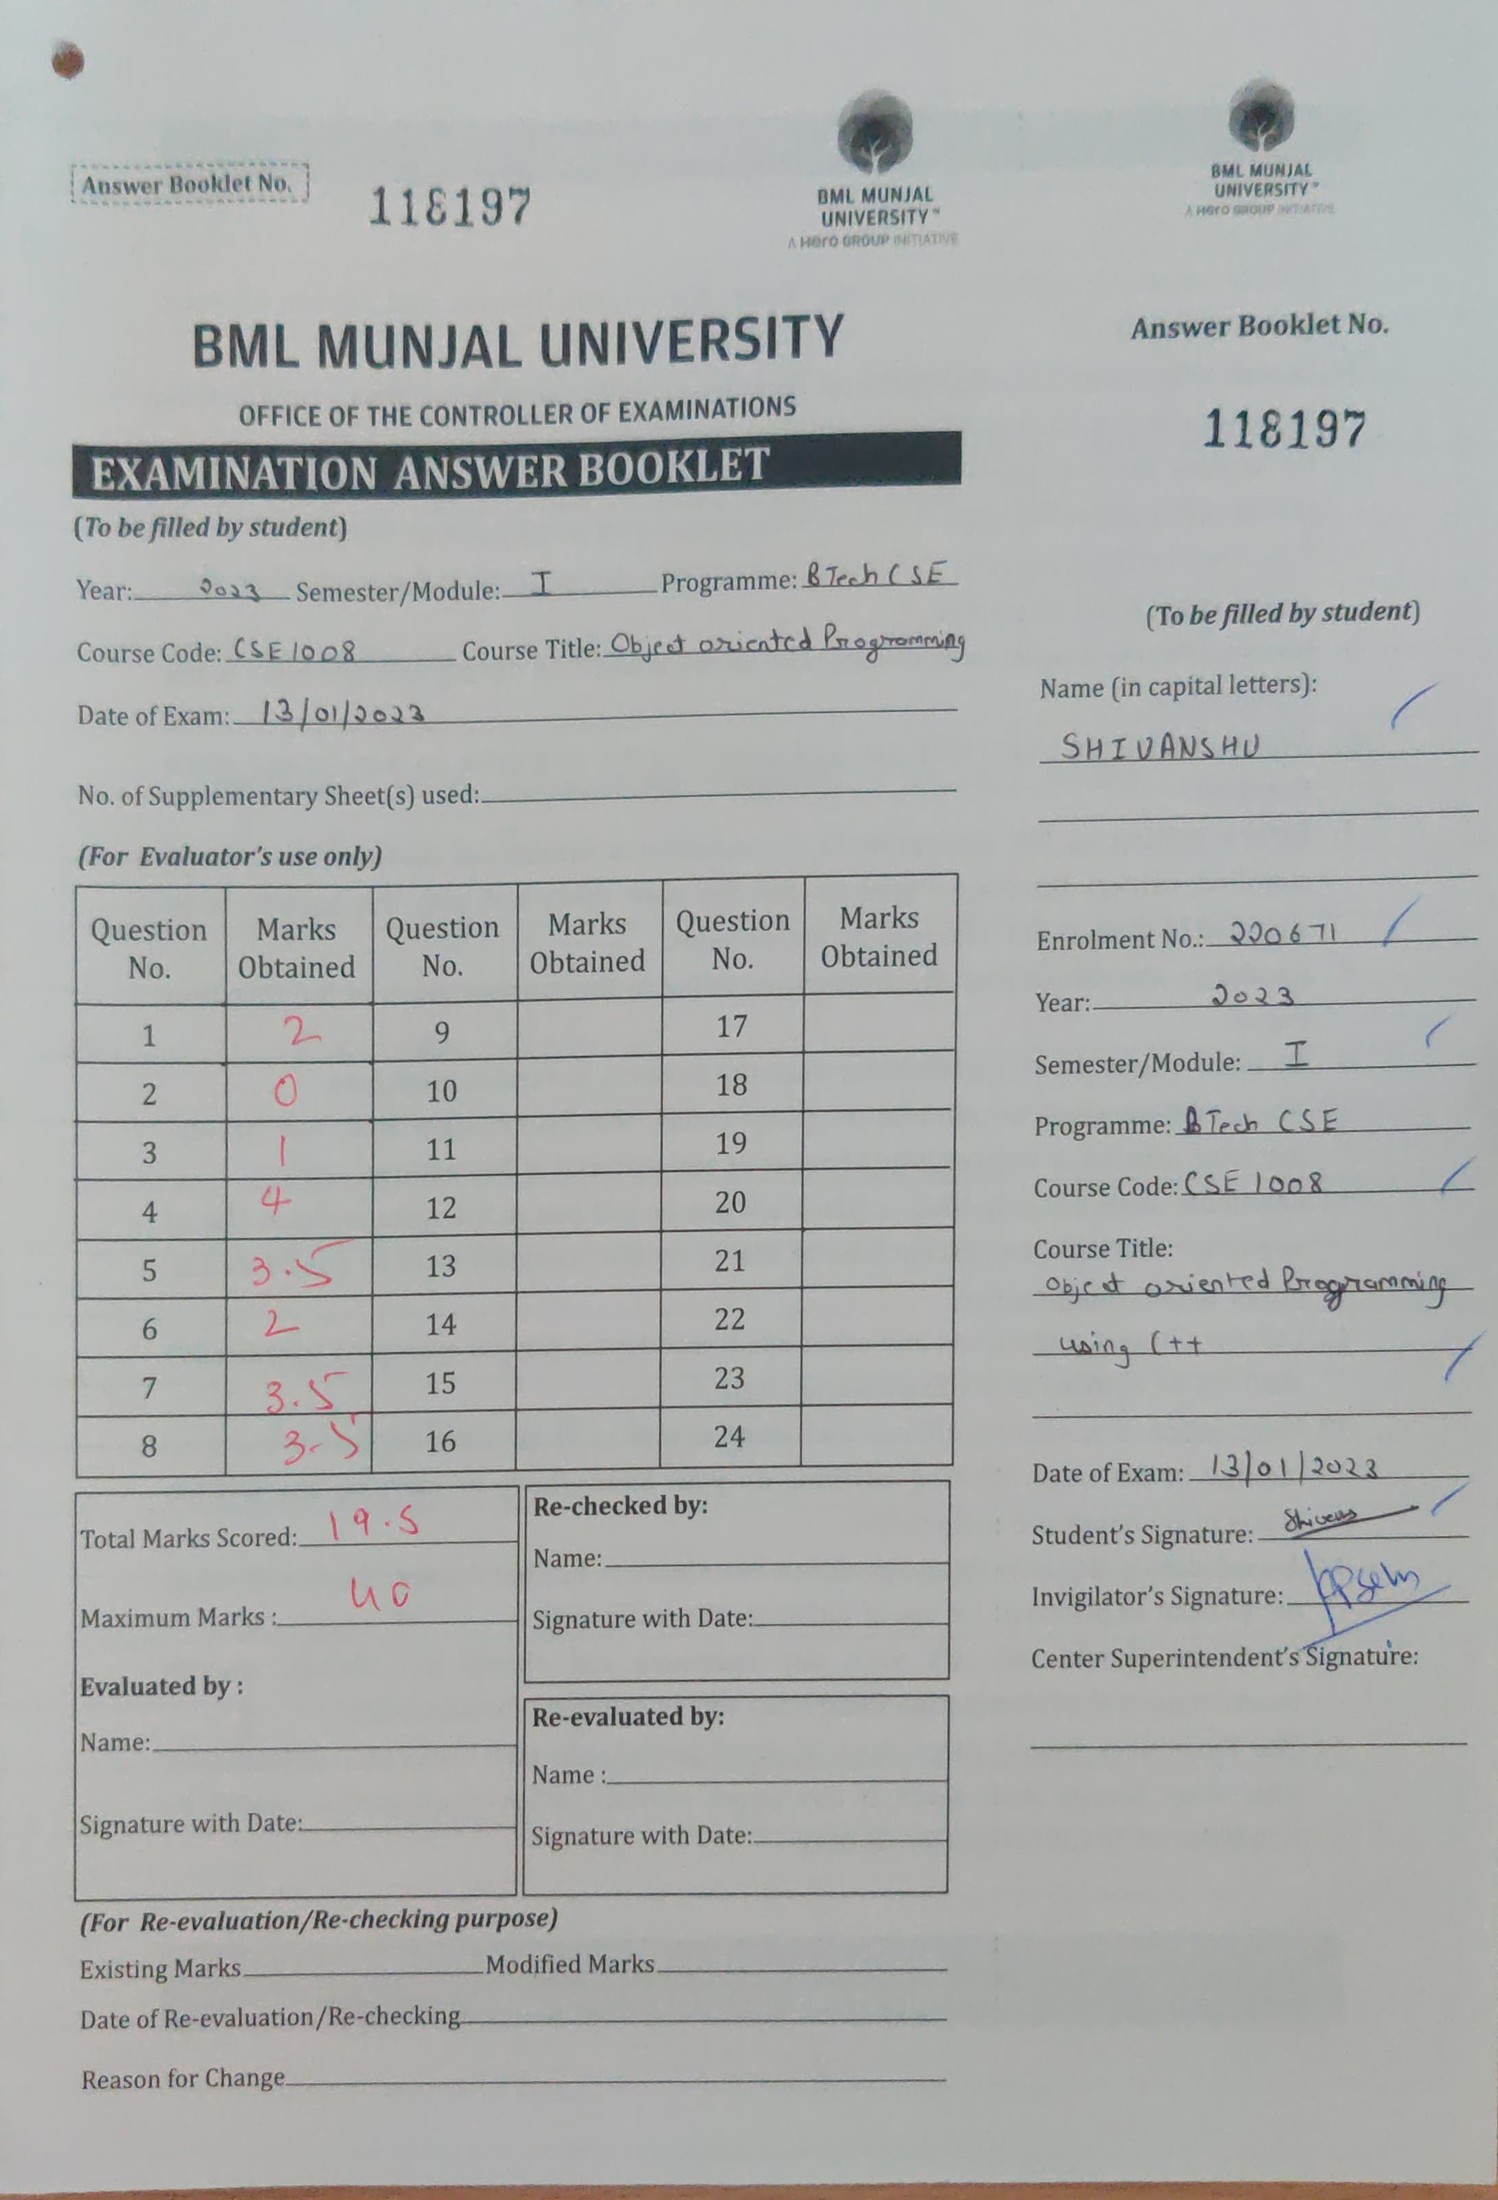 Answer Booklet No.
118197
BML MUNJAL
UNIVERSITY™
A Hero GROUP INITIATIVE
BML MUNJAL UNIVERSITY
OFFICE OF THE CONTROLLER OF EXAMINATIONS
EXAMINATION ANSWER BOOKLET
(To be filled by student)
Year: 2023 Semester/Module: I Programme: BTech CSE
Course Code: CSE1008 Course Title: Object oriented Programming
Date of Exam: 13/01/2023
No. of Supplementary Sheet(s) used:
(For Evaluator's use only)
Question No. Marks Obtained Question No. Marks Obtained Question No. Marks Obtained
1 2 9 17
2 0 10 18
3 1 11 19
4 4 12 20
5 3.5 13 21
6 2 14 22
7 3.5 15 23
8 3.5 16 24
Total Marks Scored: 19.5
Maximum Marks : 40
Evaluated by :
Name:
Signature with Date:
Re-checked by:
Name:
Signature with Date:
Re-evaluated by:
Name :
Signature with Date:
(For Re-evaluation/Re-checking purpose)
Existing Marks Modified Marks
Date of Re-evaluation/Re-checking
Reason for Change
BML MUNJAL
UNIVERSITY™
A Hero GROUP INITIATIVE
Answer Booklet No.
118197
(To be filled by student)
Name (in capital letters):
SHIVANSHU
Enrolment No.: 220671
Year: 2023
Semester/Module: I
Programme: BTech CSE
Course Code: CSE1008
Course Title:
Object oriented Programming
using C++
Date of Exam: 13/01/2023
Student's Signature:
Invigilator's Signature:
Center Superintendent's Signature: